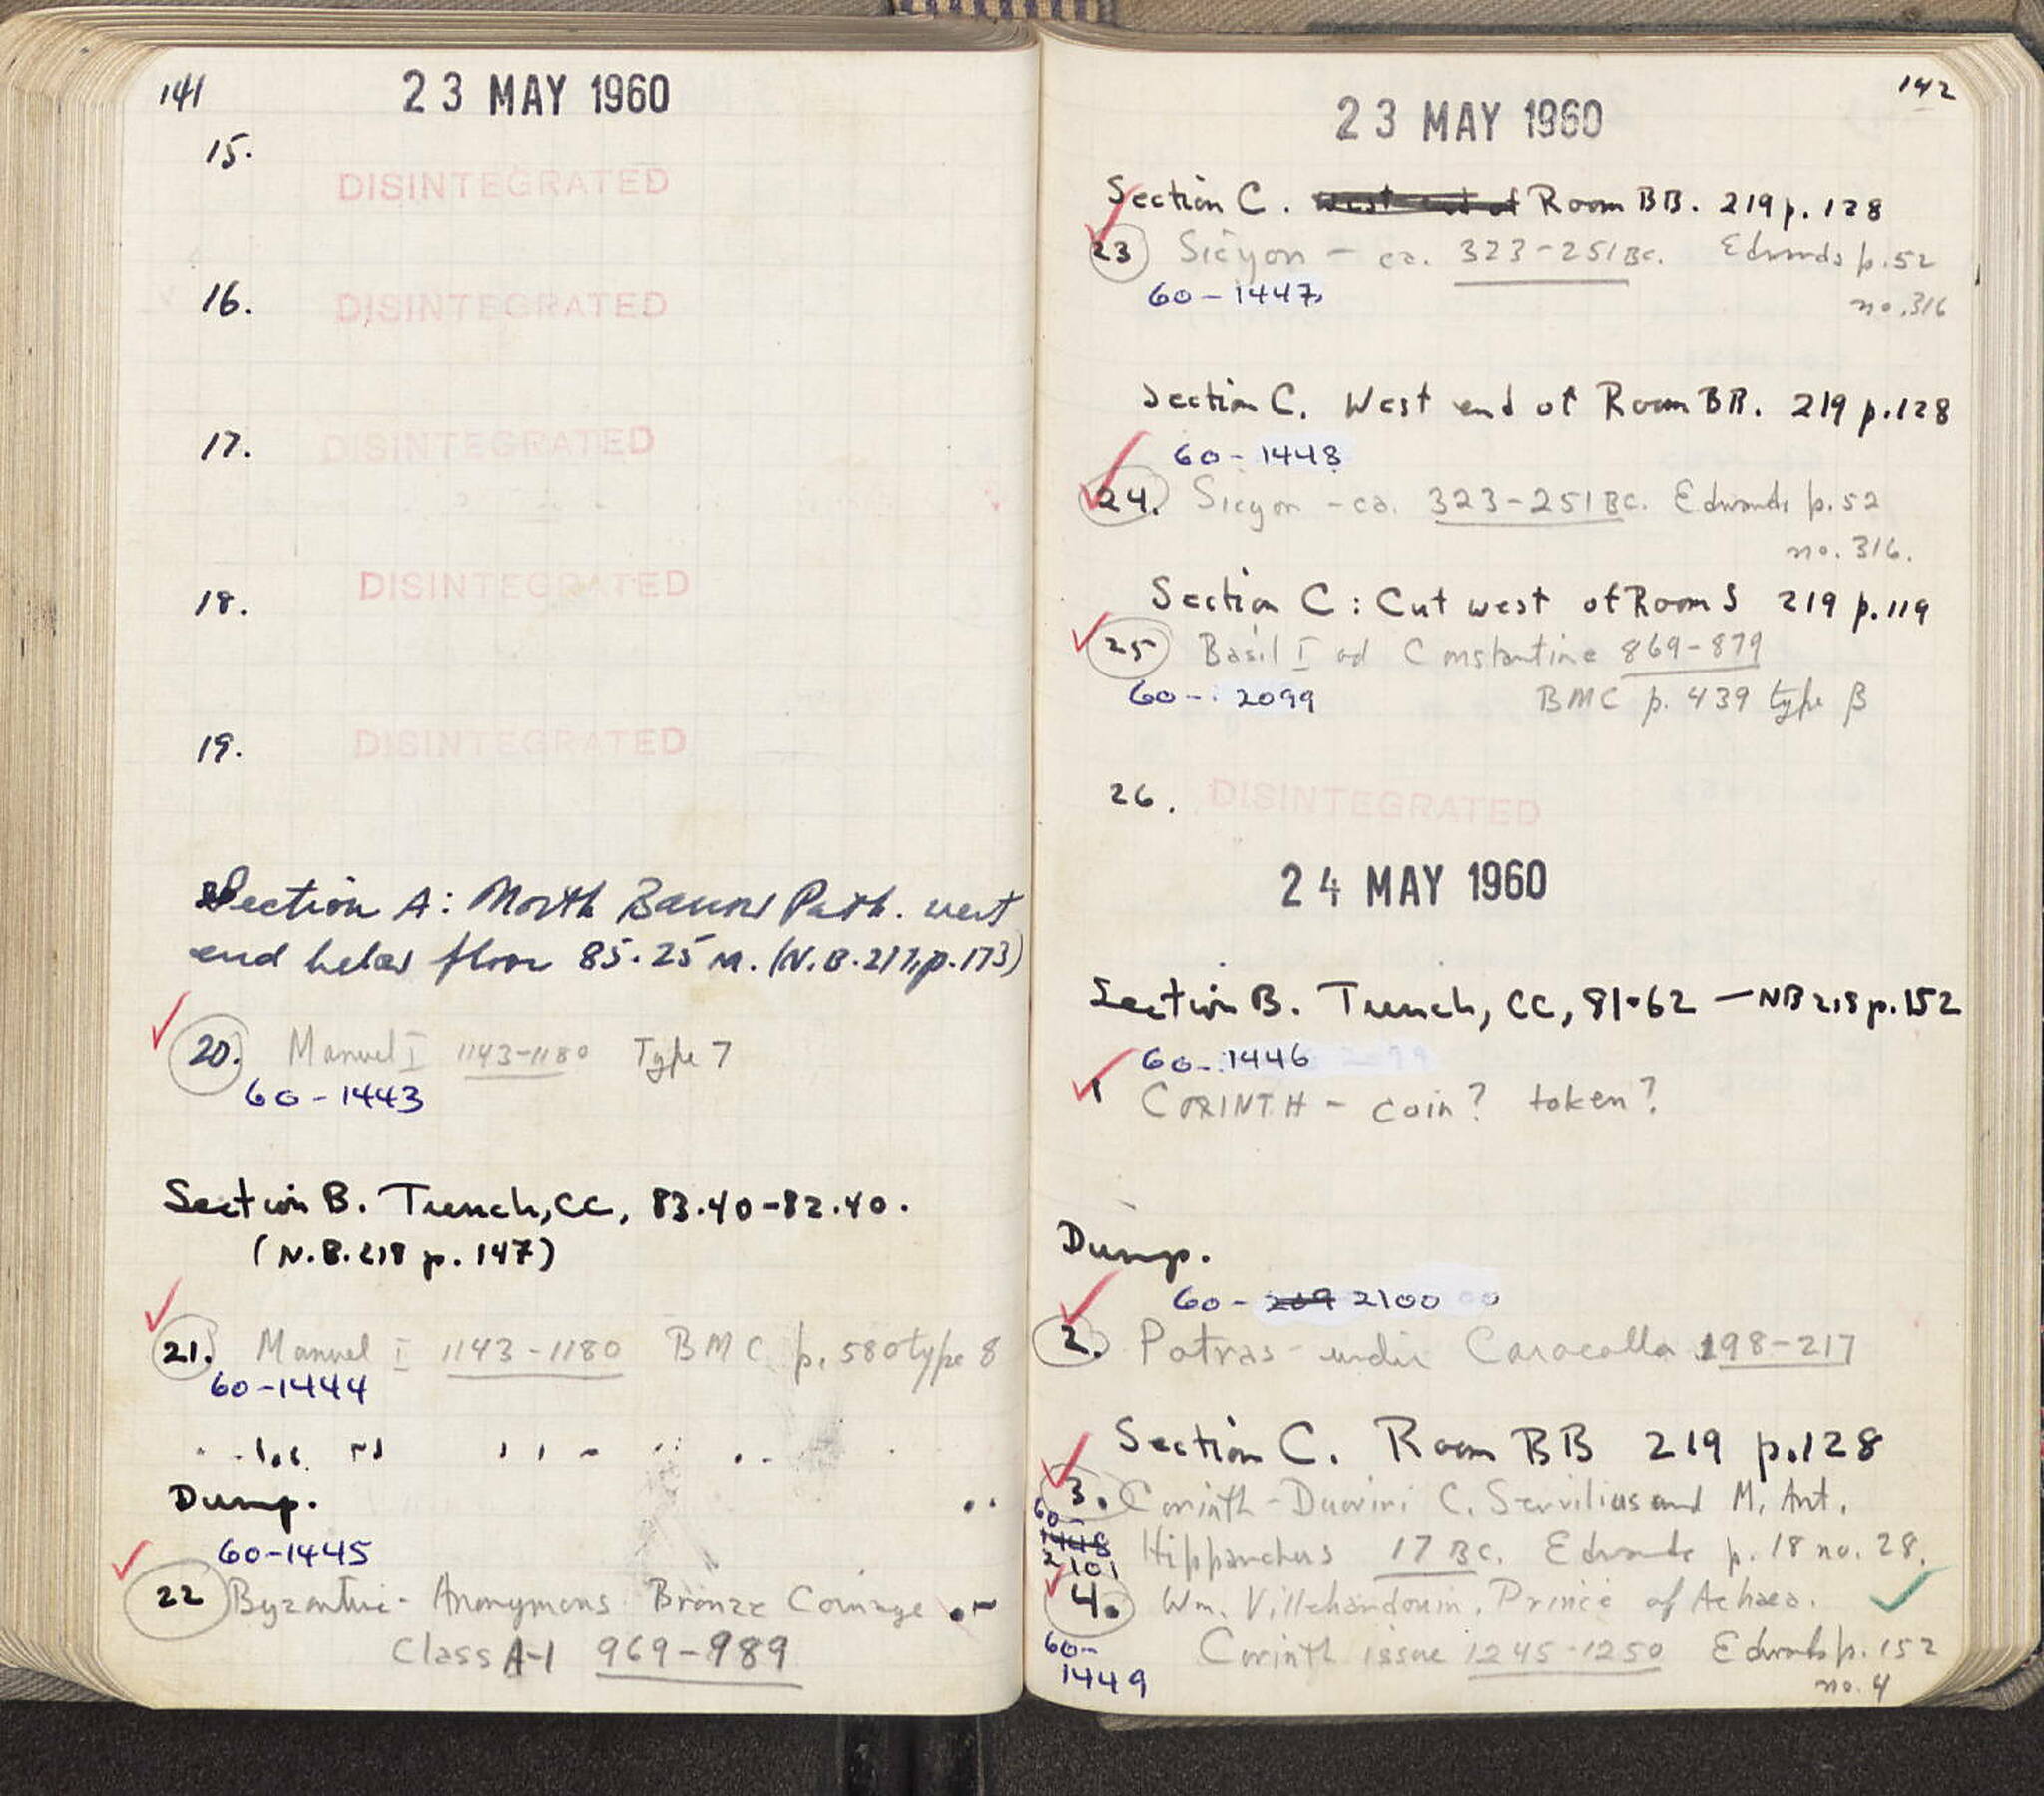 141
23 MAY 1960
15.
DISINTEGRATED
16.
DISINTEGRATED
17.
DISINTEGRATED
18.
DISINTEGRATED
19.
DISINTEGRATED
Section A: North Path. west
end below floor 85.25 M. (N.B.217, p.173)
20. Manuel I 1143-1180 Type 7
60-1443
Section B. Trench, CC, 83.40-82.40.
(N.B.218 p. 147)
21. Manuel I 1143-1180 BMC p. 580 type 8
60-1444
Dump.
60-1445
22 Byzantine - Anonymous Bronze Coinage
Class A-1 969-989
142
23 MAY 1960
Section C. West end of Room BB. 219 p. 128
23 Sicyon - ca. 323-251 BC. Edwards p. 52
60-1447
no. 316
Section C. West end of Room BB. 219 p. 128
60-1448
24. Sicyon - ca. 323-251 BC. Edwards p. 52
no. 316.
Section C: Cut west of Room S 219 p. 119
25 Basil I and Constantine 869-879
60-2099 BMC p. 439 type β
26.
DISINTEGRATED
24 MAY 1960
Section B. Trench, CC, 81.62 - NB 218 p. 152
60-1446
1 CORINTH - coin? token?
Dump.
60-209 2100
2. Patras - under Caracalla 198-217
Section C. Room BB 219 p. 128
3. Corinth - Duoviri C. Servilius and M. Ant.
Hipparchus 17 BC. Edwards p. 18 no. 28.
60-
1448
2101
4. Wm. Villehardouin, Prince of Achaea.
Corinth issue 1245-1250 Edwards p. 152
no. 4
60-
1449